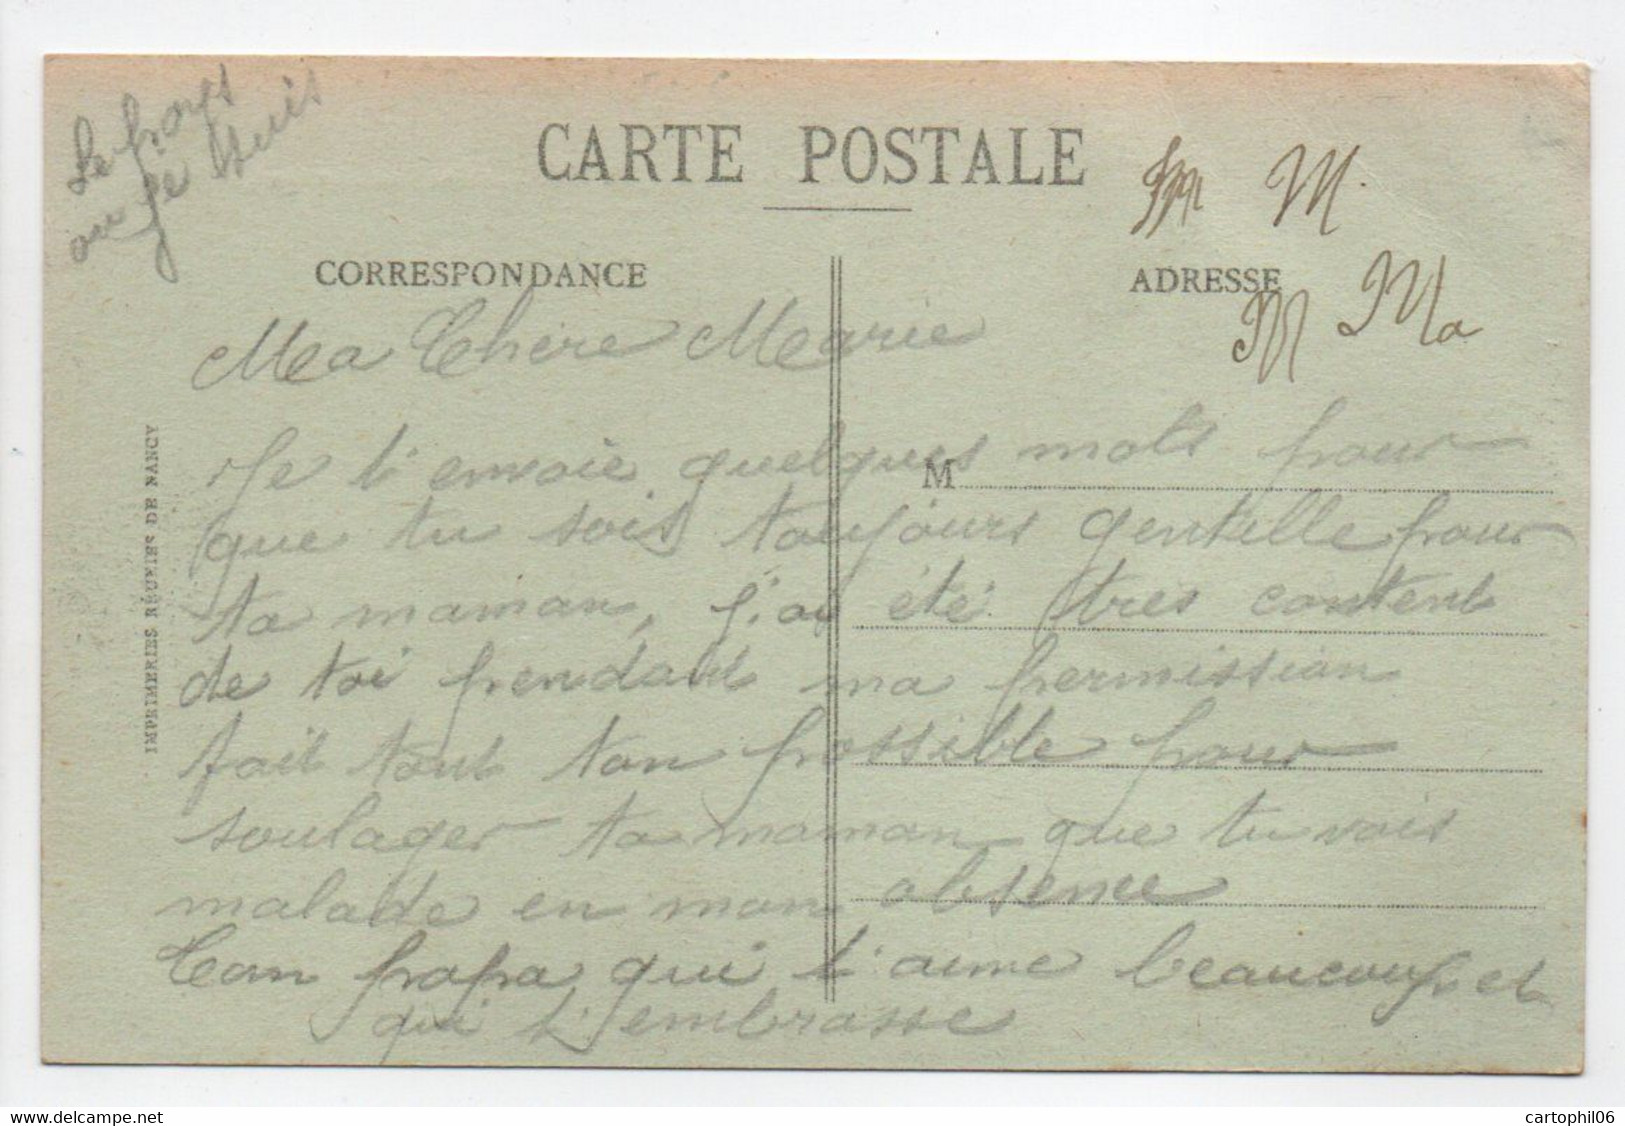 Le pays
ou je suis
CARTE POSTALE
CORRESPONDANCE
ADRESSE
M M.
M Ma
Ma Chère Marie
Je t'envoie quelques mots pour
M
que tu sois toujours gentille pour
ta maman, j'ai été tres content
de toi pendant ma permission
fait tout ton possible pour
soulager ta maman que tu vois
malade en mon absence
Ton papa qui t'aime beaucoup et
qui t'embrasse
IMPRIMERIES RÉUNIES DE NANCY
www.delcampe.net
cartophil06